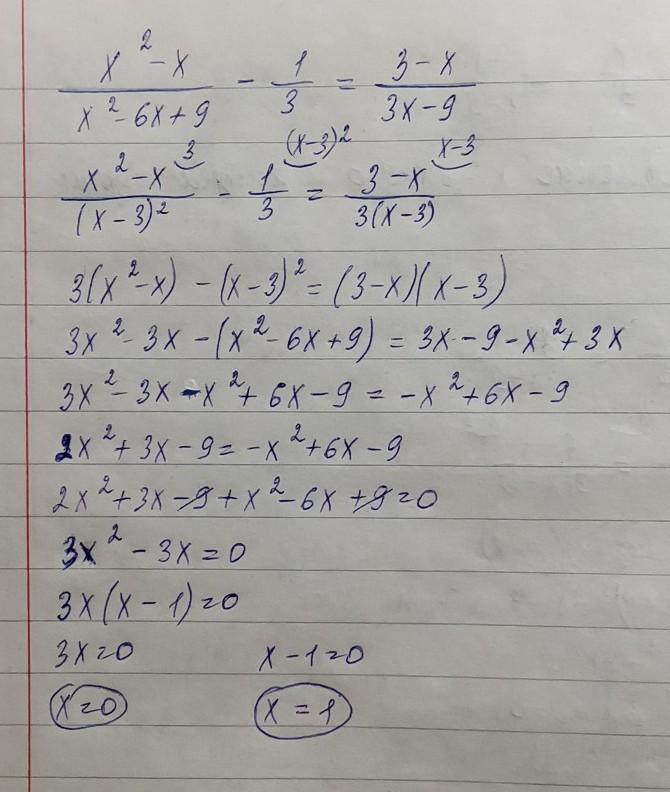 (x² - x)/(x² - 6x + 9) - 1/3 = (3 - x)/(3x - 9)
(x² - x)/(x - 3)² ⌣3 - 1/3 ⌣(x-3)² = (3 - x)/3(x - 3) ⌣x-3
3(x² - x) - (x - 3)² = (3 - x)(x - 3)
3x² - 3x - (x² - 6x + 9) = 3x - 9 - x² + 3x
3x² - 3x - x² + 6x - 9 = -x² + 6x - 9
2x² + 3x - 9 = -x² + 6x - 9
2x² + 3x - 9 + x² - 6x + 9 = 0
3x² - 3x = 0
3x(x - 1) = 0
3x = 0 x - 1 = 0
x = 0 x = 1